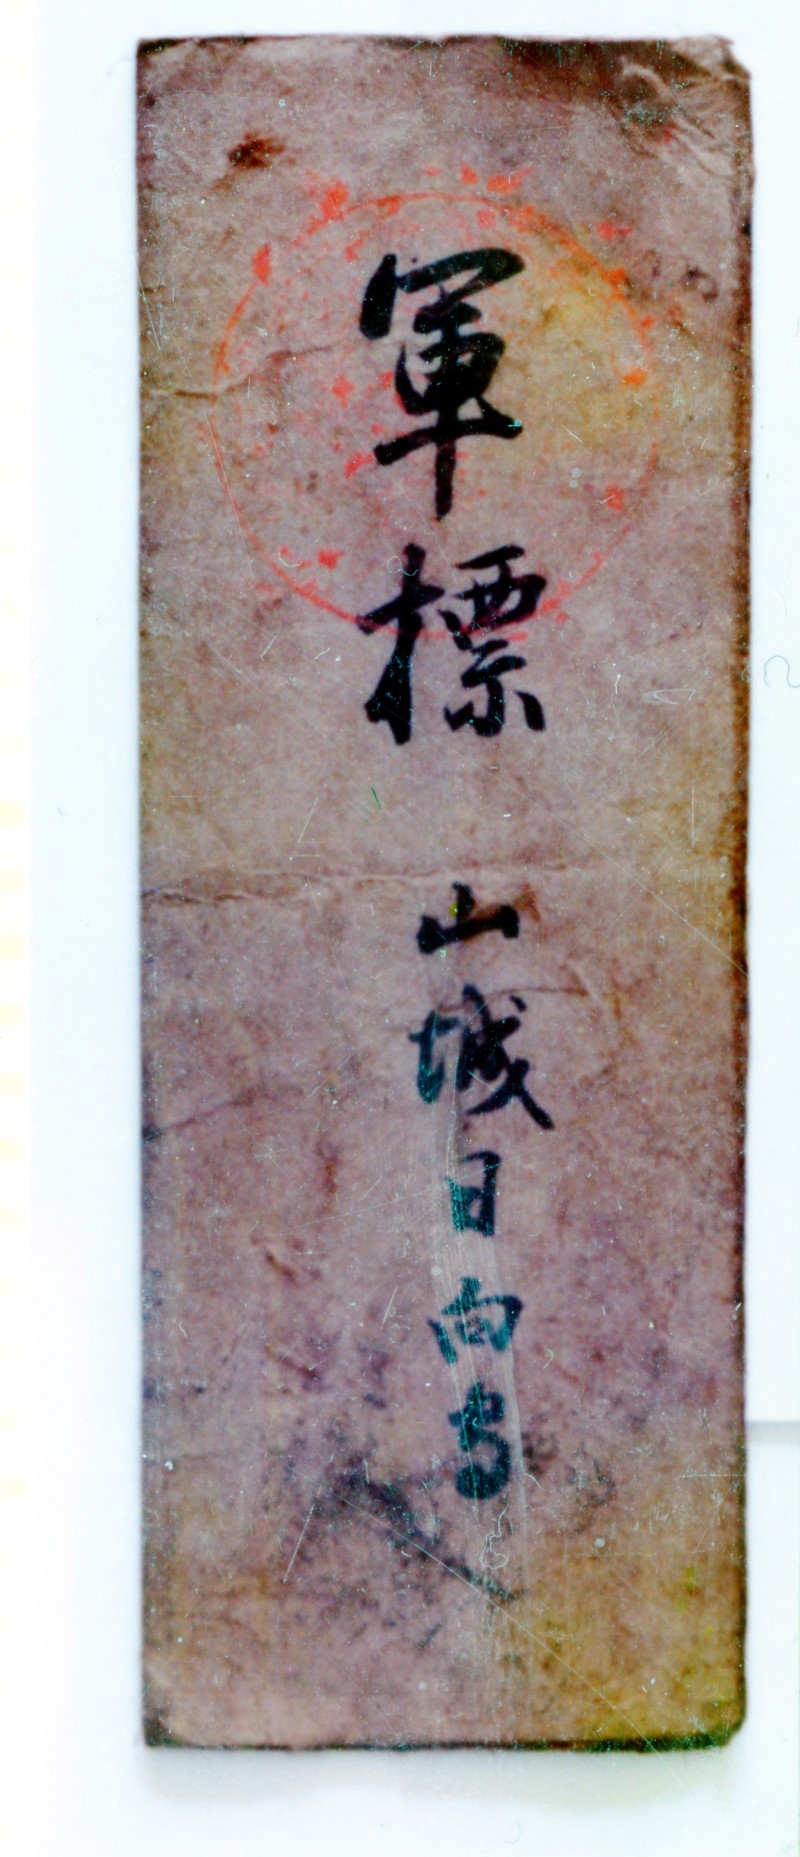 軍標 山城日向守